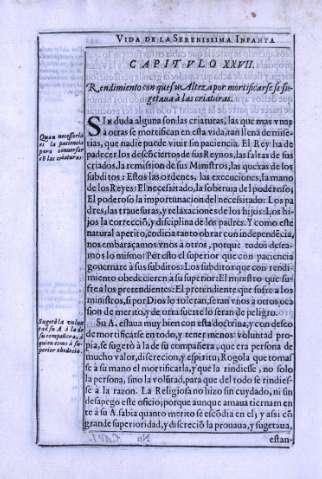 VIDA DE LA SERENISSIMA INFANTA
CAPITVLO XXVII.
Rendimiento con que su Alteza por mortificarse se su-
getaua à las criaturas.
SIn duda alguna son las criaturas, las que mas vnos
à otras se mortifican en esta vida, tan llena de mise-
rias, que nadie puede viuir sin paciencia. El Rey ha de
padecer los desconciertos de sus Reynos, las faltas de sus
criados, la remission de sus Ministros, las quexas de los
subditos: Estos las ordenes, las execuciones, la mano
de los Reyes: El necesitado, la soberuia del poderoso;
El poderoso la importunacion del necesitado: Los pa-
dres, las trauesuras, y relaxaciones de los hijos: Los hi-
jos la correcciõ, y disciplina de los padres. Y como este
natural apetito, codicia tanto obrar con independẽcia,
nos embaraçamos vnos à otros, porque todos desea-
mos lo mismo: Pero si el superior que con paciencia
gouierna à sus subditos: Los subditos que con rendi-
miento obedecieren à su superior: El ministro que su-
frea los pretendientes: El pretendiente que sufre a los
ministros, si por Dios lo toleran, seran vnos a otros oca-
sion de merito, y de otra suerte lo seran de peligro.
Su A. estaua muy bien con esta doctrina, y con deseo
de mortificarse en todo, y tener menos voluntad pro-
pia, se sugetò à la de su compañera, que era persona de
mucho valor, discrecion, y espiritu; Rogola que tomas-
se à su mano el mortificarla, y que la rindiesse, no solo
la persona, sino la volũtad, para que del todo se rindies-
se à la razon. La Religiosa no hizo sin cuydado, ni sin
desapego este oficio; porque aunque amaua tiernamen-
te à su A. sabia quanto merito se escõdia en el; y asi cõ
grande superioridad, y discreciõ la prouaua, y sugetaua,
estan-
Quan necessaria
es la paciencia
para conuersar
cõ las criaturas.
Sugetòla volun
tad su A. à la de
su compañera, à
quien como à su-
perior obedecia.